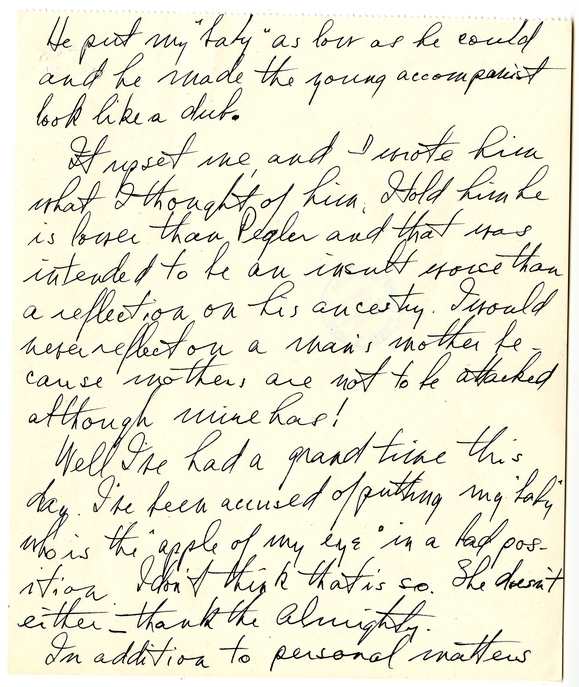 He put my "baby" as low as he could
and he made the young accompanist
look like a dub.
It upset me and I wrote him
what I thought of him. I told him he
is lower than Pegler and that was
intended to be an insult worse than
a reflection on his ancestry. I would
never reflect on a man's mother be-
cause mothers are not to be attacked
although mine has!
Well I've had a grand time this
day. I've been accused of putting my "baby"
who is the "apple of my eye" in a bad pos-
ition. I don't think that is so. She doesn't
either - thank the Almighty.
In addition to personal matters